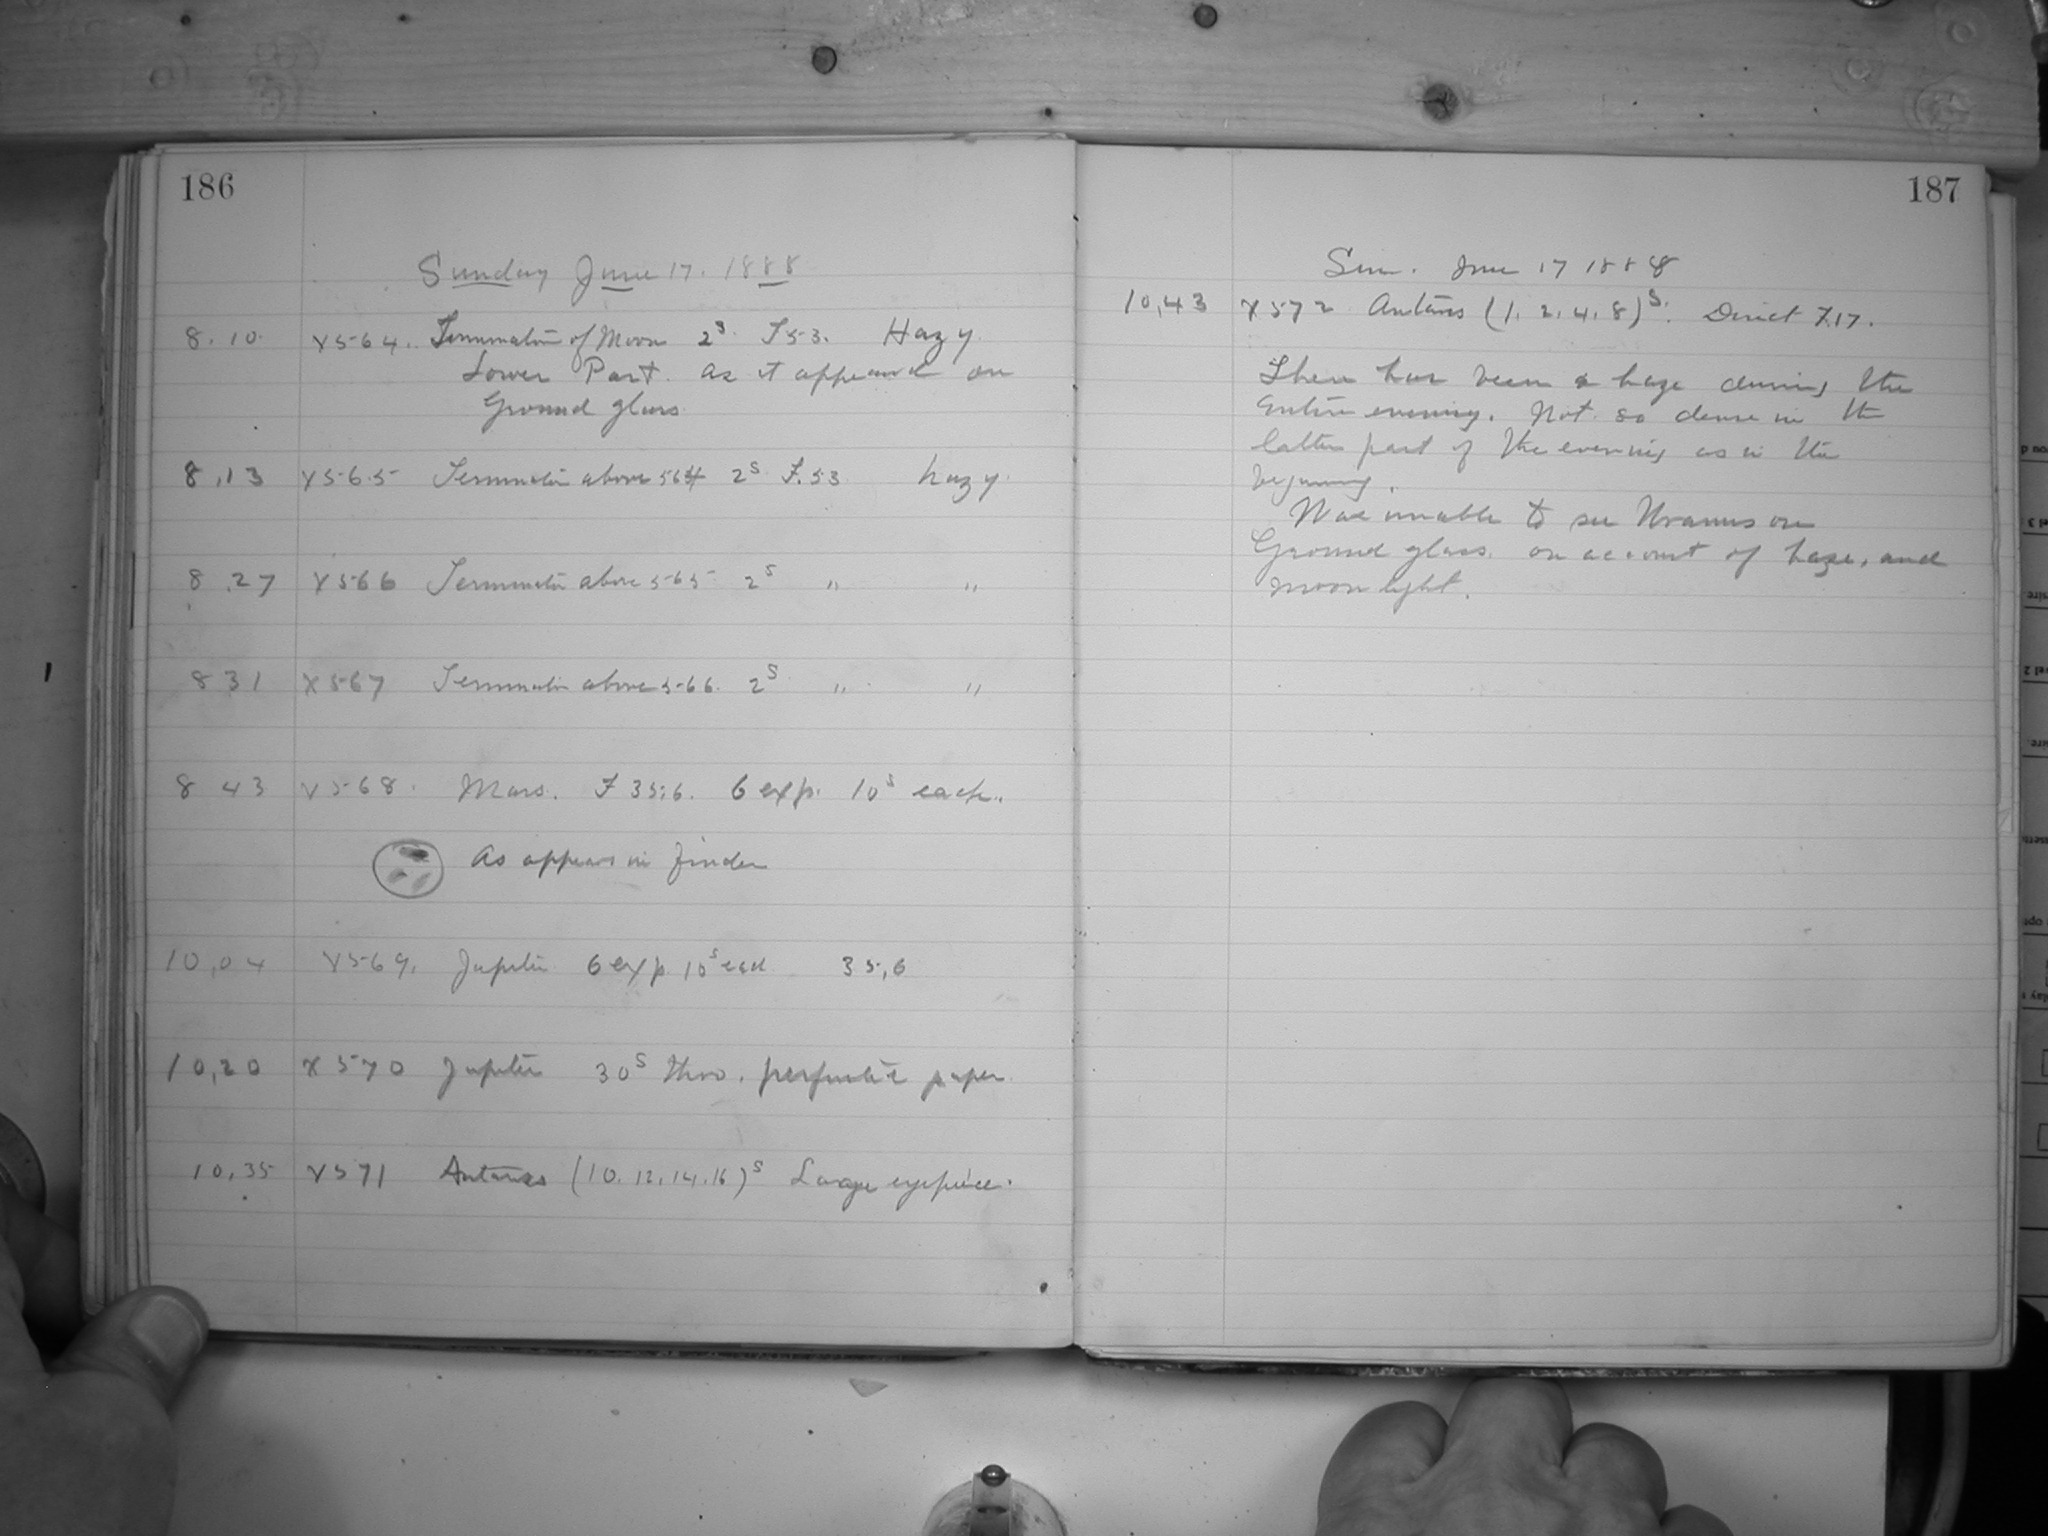 186
Sunday June 17. 1888
8.10. X564. Terminator of Moon 2s. F53. Hazy.
Lower Part. as it appeared on
Ground glass
8,13 X565 Terminator above 564 2s F.53 hazy.
8,27 X566 Terminator above 565 2s " "
8 31 X567 Terminator above 566. 2s " "
8 43 X568. Mars. F 35,6. 6 exp. 10s each.
As appears in finder
10,04 X569. Jupiter 6 exp. 10s each 35,6
10,20 X570 Jupiter 30s thro. paper.
10,35 X571 Antares (10. 12. 14. 16)s Large eyepiece.
187
Sun. June 17 1888
10,43 X572 Antares (1. 2. 4. 8)s. Direct F.17.
There has been a haze during the
entire evening. Not so dense in the
latter part of the evening as in the
beginning.
Was unable to see Uranus on
Ground glass. on account of haze, and
moon light.